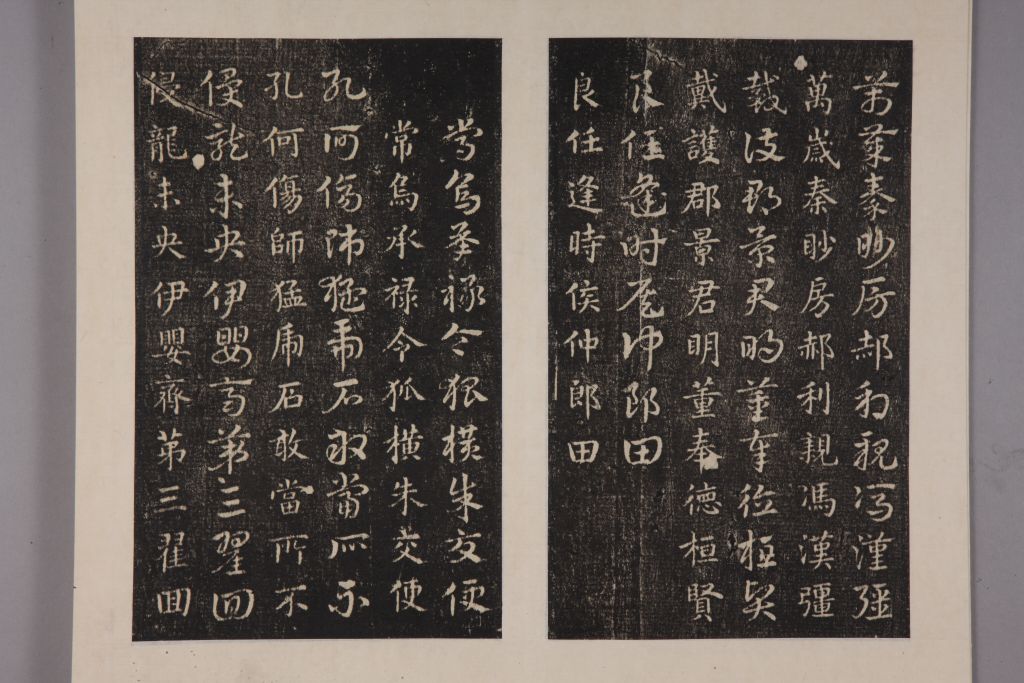 萬歲秦眇房郝利親馮漢彊
萬歲秦眇房郝利親馮漢彊
戴護郡景君明董奉德桓賢
戴護郡景君明董奉德桓賢
良任逢時侯仲郎田
良任逢時侯仲郎田
常烏承祿令狐橫朱交便
常烏承祿令狐橫朱交便
孔何傷師猛虎石敢當所不
孔何傷師猛虎石敢當所不
侵龍未央伊嬰齊第三翟回
侵龍未央伊嬰齊第三翟回